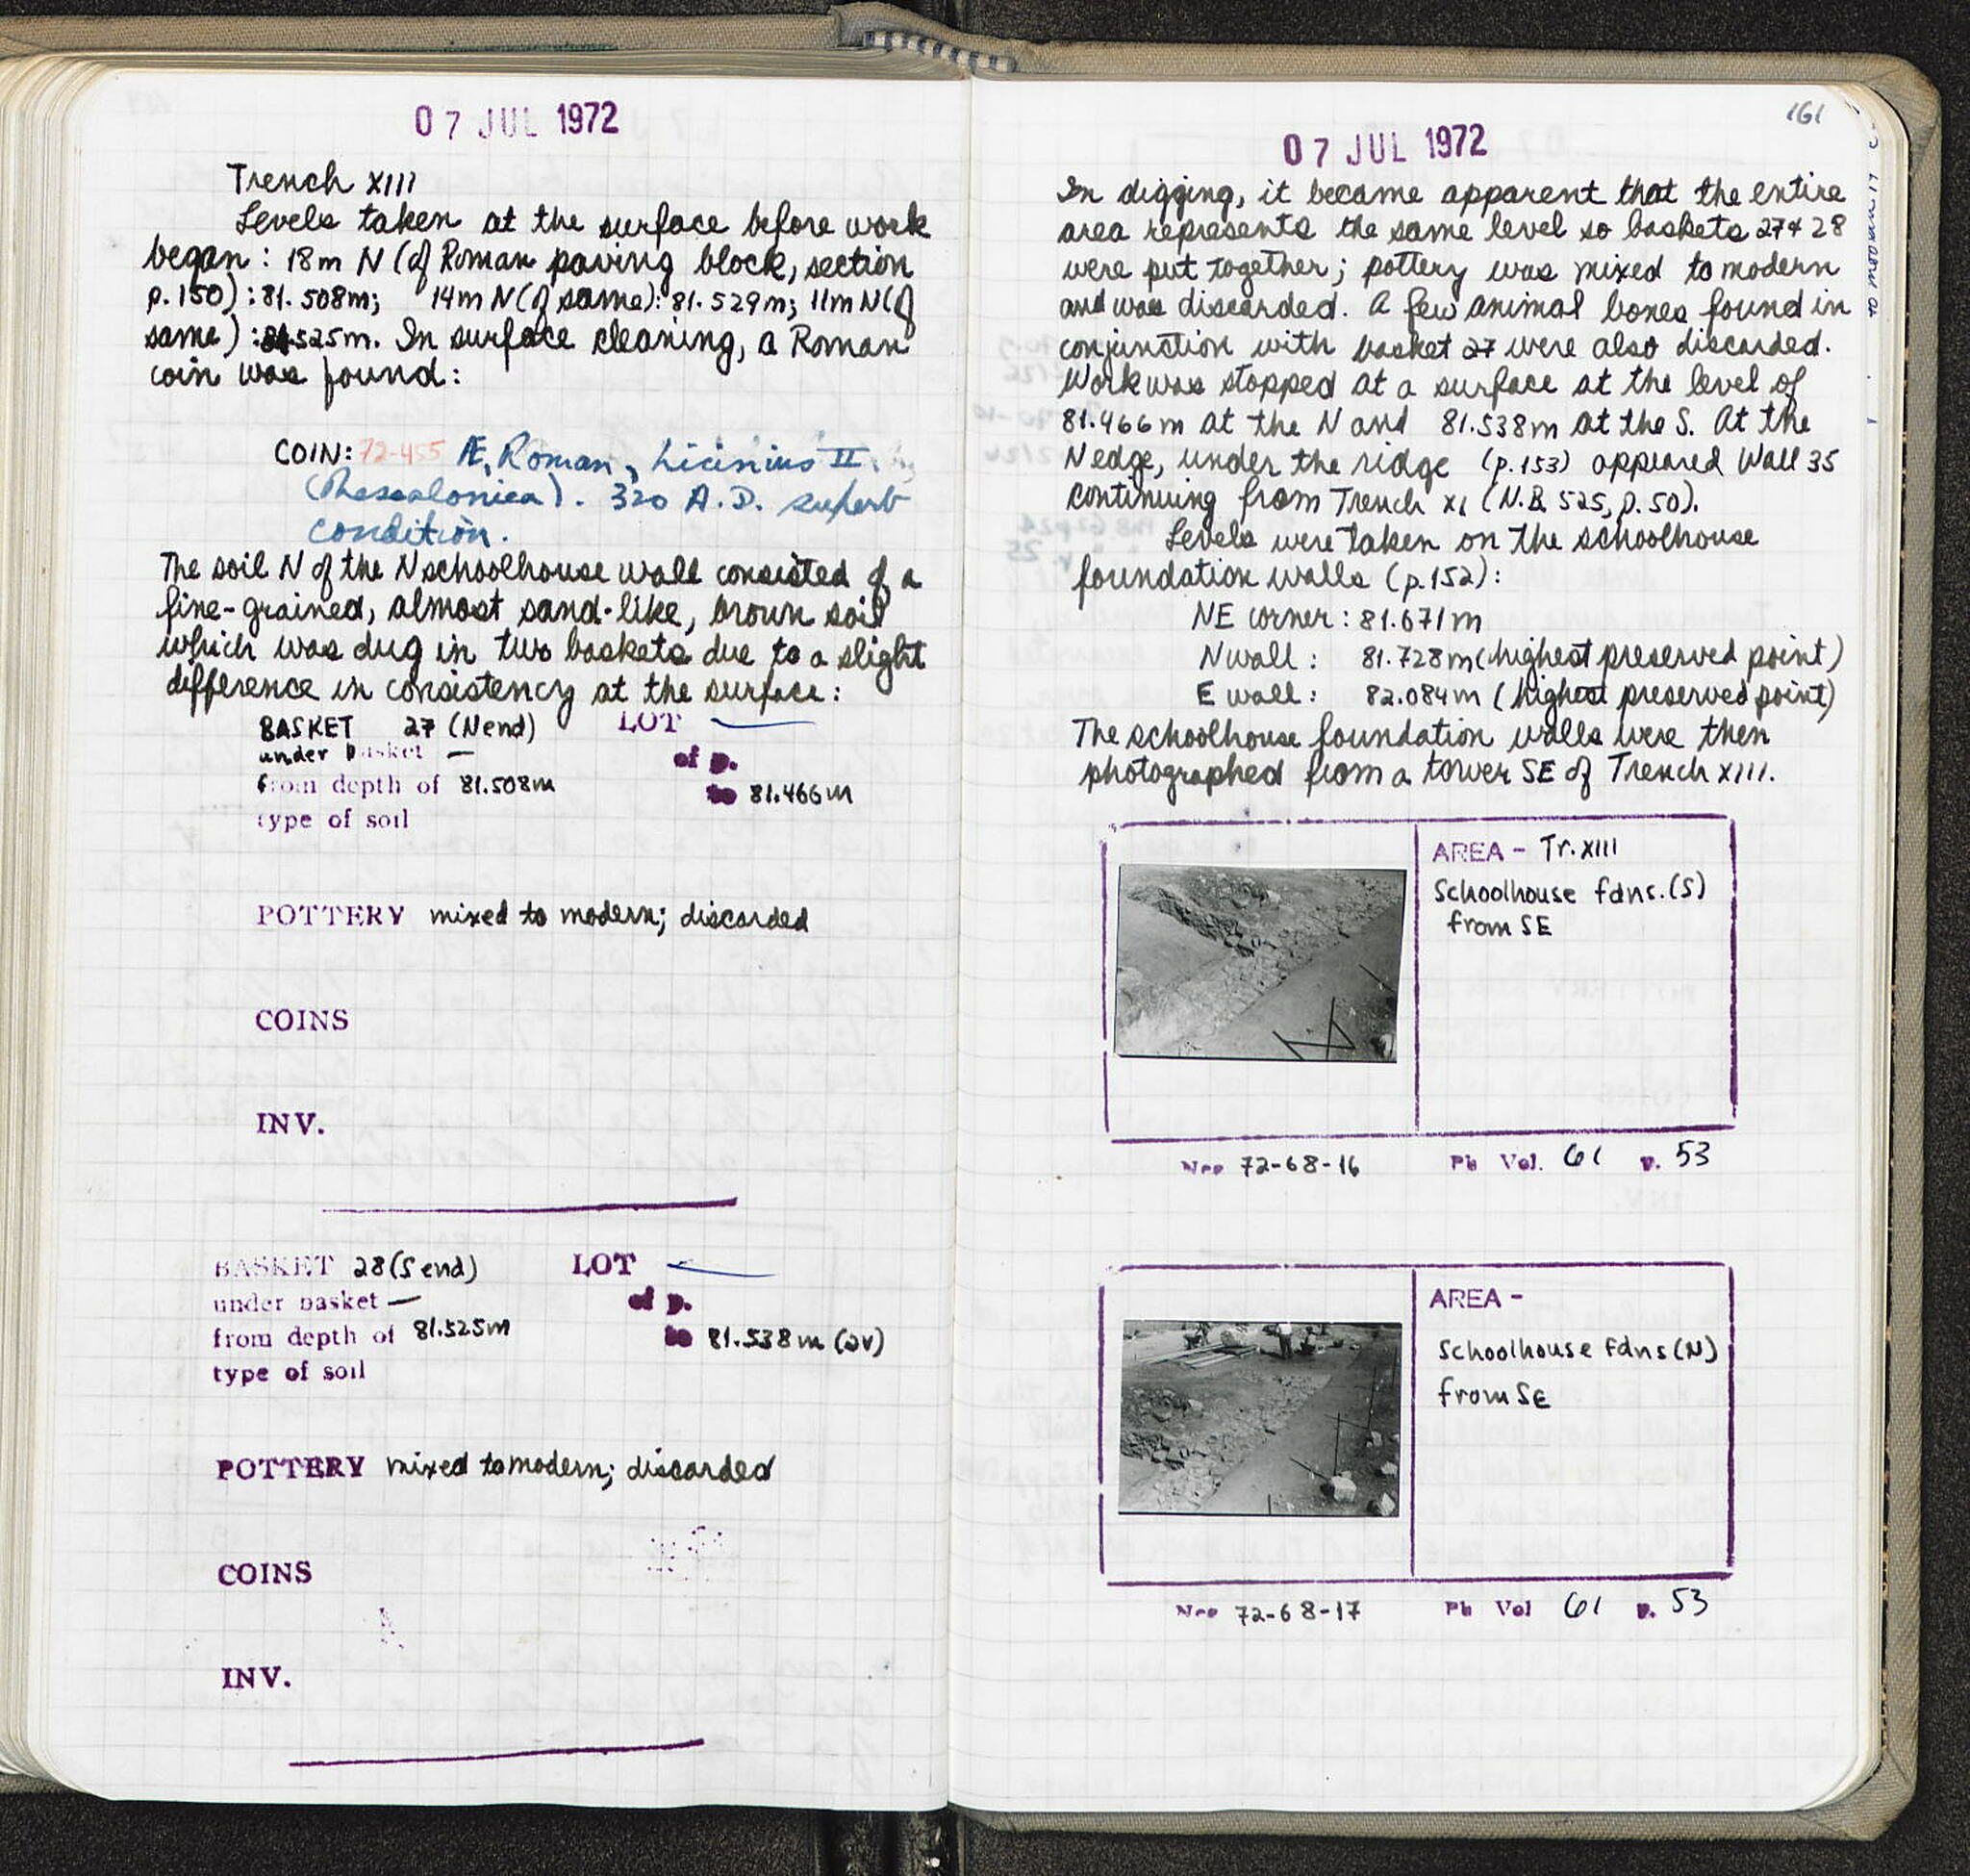 07 JUL 1972
Trench XIII
Levels taken at the surface before work
began: 18m N (of Roman paving block, section
p.150): 81.508m; 14m N (of same): 81.529m; 11m N (of
same): 81.525m. In surface cleaning, a Roman
coin was found:
COIN: 72-455 Æ, Roman, Licinius II.
(Thessalonica). 320 A.D. superb
condition.
The soil N of the N schoolhouse wall consisted of a
fine-grained, almost sand-like, brown soil
which was dug in two baskets due to a slight
difference in consistency at the surface:
BASKET 27 (N end) LOT —
under basket — of p.
from depth of 81.508m to 81.466m
type of soil
POTTERY mixed to modern; discarded
COINS
INV.
BASKET 28 (S end) LOT —
under basket — of p.
from depth of 81.525m to 81.538m (av)
type of soil
POTTERY mixed to modern; discarded
COINS
INV.
161
07 JUL 1972
In digging, it became apparent that the entire
area represents the same level so baskets 27 + 28
were put together; pottery was mixed to modern
and was discarded. A few animal bones found in
conjunction with basket 27 were also discarded.
Work was stopped at a surface at the level of
81.466m at the N and 81.538m at the S. At the
N edge, under the ridge (p.153) appeared Wall 35
continuing from Trench XI (N.B. 525, p.50).
Levels were taken on the schoolhouse
foundation walls (p.152):
NE corner: 81.671m
N wall: 81.728m (highest preserved point)
E wall: 82.084m (highest preserved point)
The schoolhouse foundation walls were then
photographed from a tower SE of Trench XIII.
AREA - Tr. XIII
Schoolhouse fdns. (S)
from SE
Neg 72-68-16 Ph Vol. 61 p. 53
AREA -
Schoolhouse fdns (N)
from SE
Neg 72-68-17 Ph Vol 61 p. 53